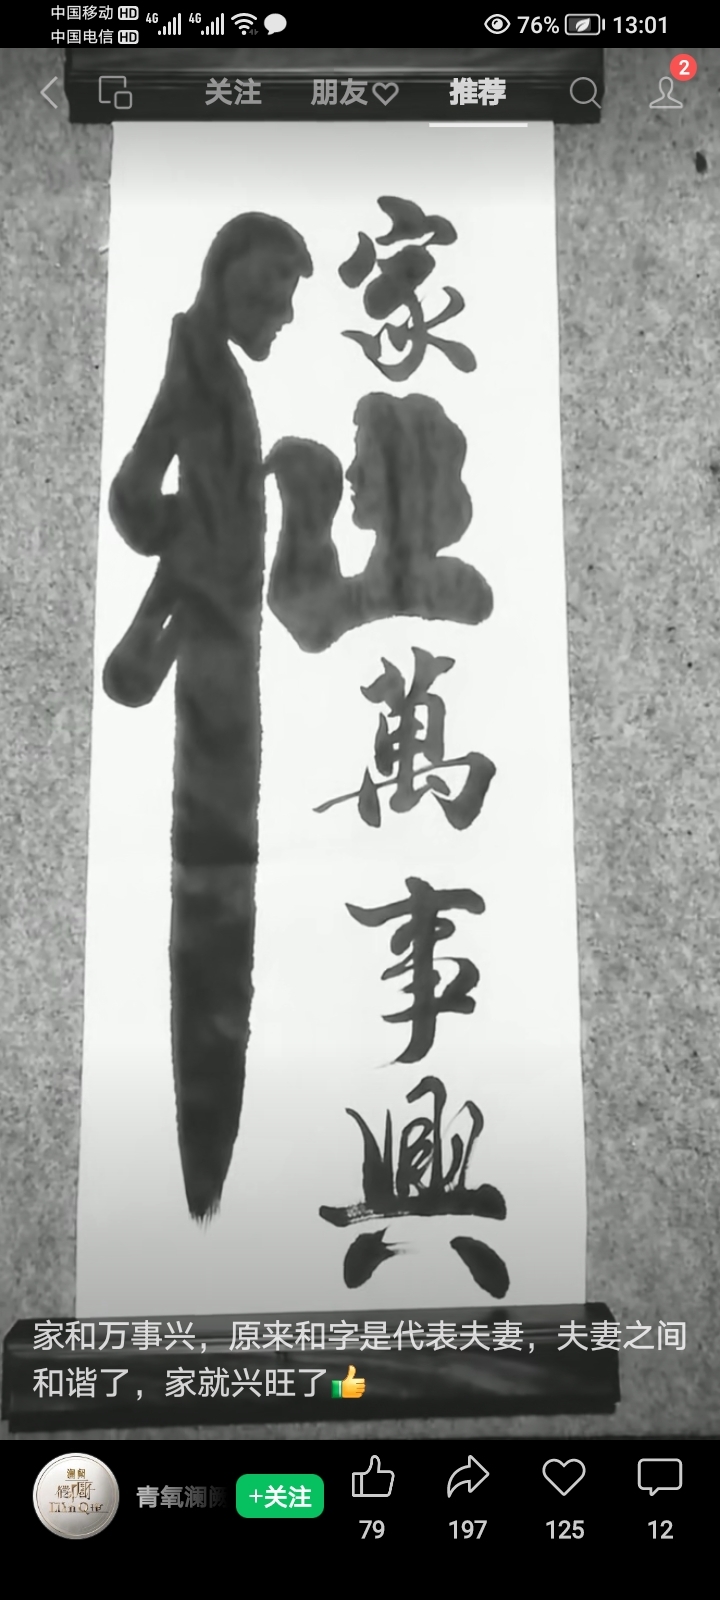 中国移动 HD 4G 4G 76% 13:01
中国电信 HD
关注 朋友 推荐 2
家
和
萬
事
興
家和万事兴，原来和字是代表夫妻，夫妻之间
和谐了，家就兴旺了👍
青氧澜 +关注
79 197 125 12